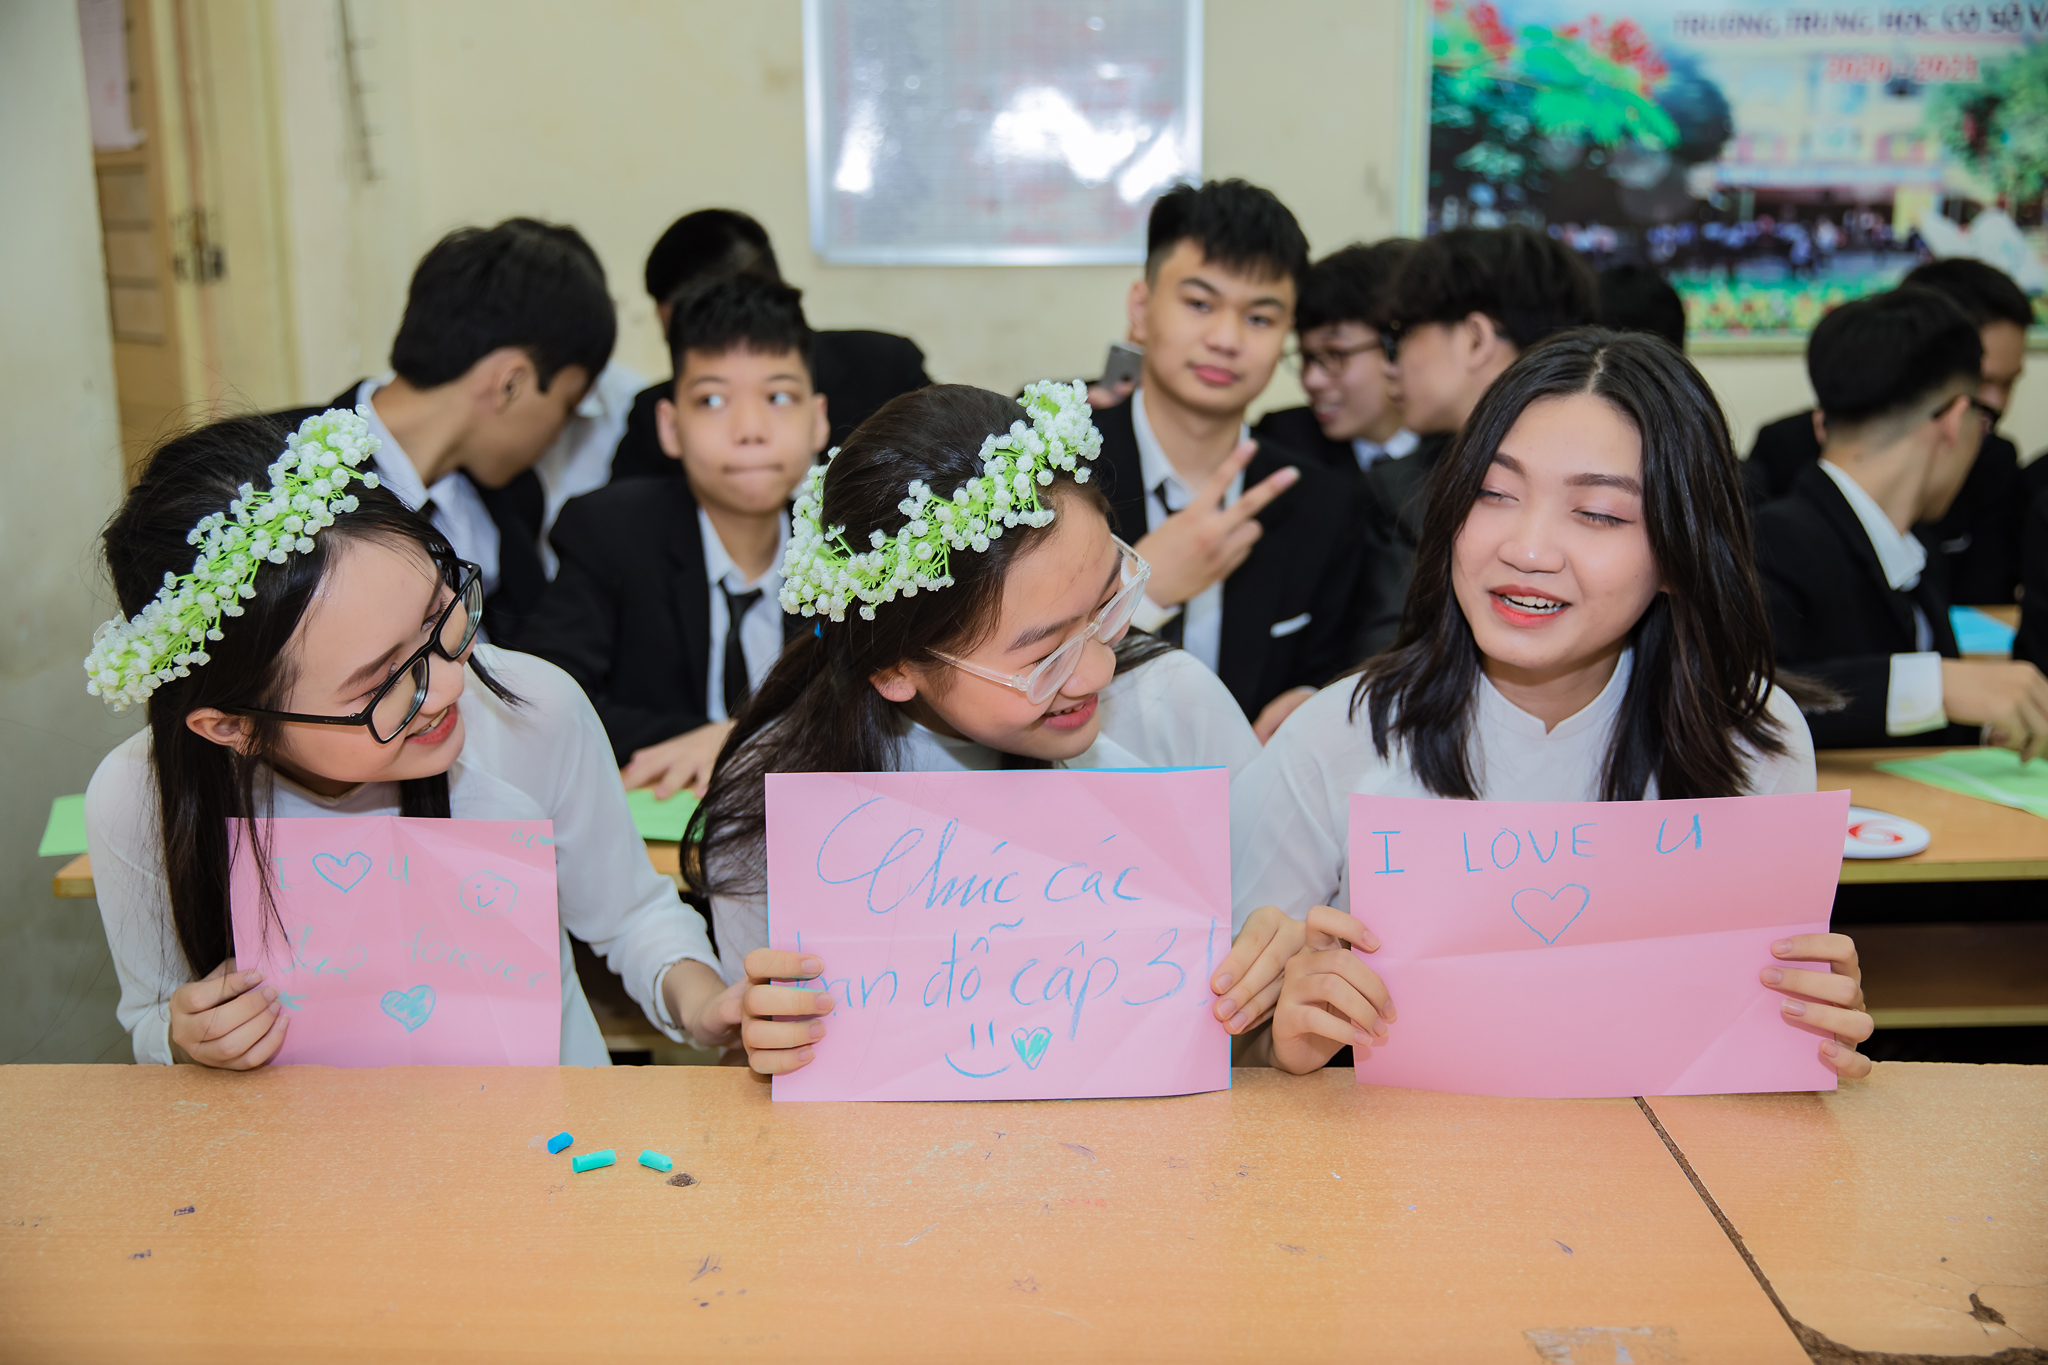 TRƯỜNG TRUNG HỌC CƠ SỞ
2020 - 2021
I U
forever
Chúc các
bạn đỗ cấp 3!
I LOVE U